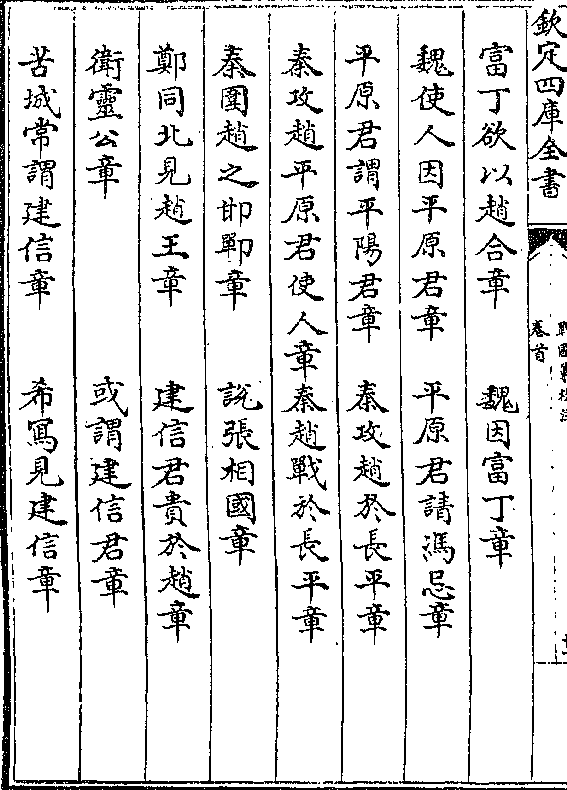 欽定四庫全書
卷首
富丁欲以趙合章　魏因富丁章
魏使人因平原君章　平原君請馮忌章
平原君謂平陽君章　秦攻趙於長平章
秦攻趙平原君使人章秦趙戰於長平章
秦圍趙之邯鄲章　說張相國章
鄭同北見趙王章　建信君貴於趙章
衛靈公章　或謂建信君章
苦城常謂建信章　希寫見建信章